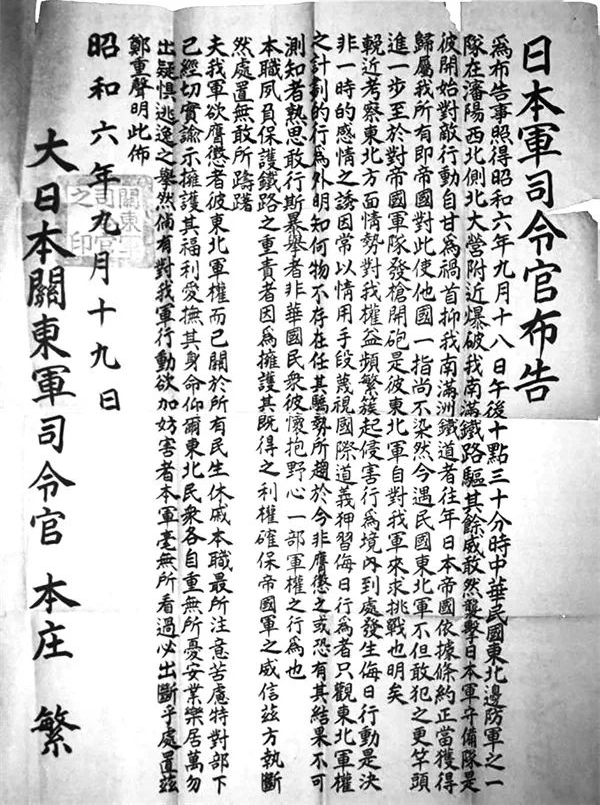 日本軍司令官布告
為布告事照得昭和六年九月十八日午後十點三十分時中華民國東北邊防軍之一
隊在瀋陽西北側北大營附近爆破我南滿鐵路驅其餘威敢然襲擊日本軍守備隊是
彼開始對敵行動自甘為禍首抑我南滿洲鐵道者往年日本帝國依據條約正當獲得
歸屬我所有即帝國對此使他國一指尚不染然今遇民國東北軍不但敢犯之更竿頭
進一步至於對帝國軍隊發槍開砲是彼東北軍自對我軍來求挑戰也明矣
輓近考察東北方面情勢對我權益頻繁簇起侵害行為境內到處發生侮日行動是決
非一時的感情之誘因常以情用手段蔑視國際道義狎習侮日行為者只觀東北軍權
之計劃的行為外明知何物不存在任其驕勢所趨於今非膺懲之或恐有其結果不可
測知者熟思敢行斯暴舉者非華國民衆彼懷抱野心一部軍權之行為也
本職夙負保護鐵路之重責者因為擁護其既得之利權確保帝國軍之威信茲方執斷
然處置無敢所躊躇
夫我軍欲膺懲者彼東北軍權而已關於所有民生休戚本職最所注意苦慮特對部下
已經切實諭示擁護其福利愛撫其身命仰爾東北民衆各自重無所憂安業樂居萬勿
出疑惧逃逸之舉然倘有對我軍行動欲加妨害者本軍毫無所看過必出斷乎處置茲
鄭重聲明此佈
昭和六年九月十九日
關東軍司令官之印
大日本關東軍司令官 本庄 繁